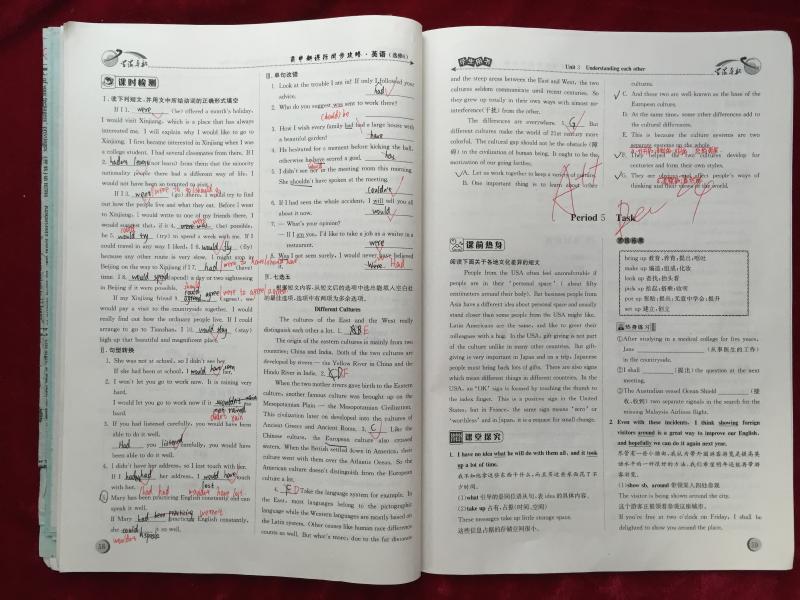 高中新课标同步攻略·英语(选修6)
课时检测
Ⅰ.读下列短文,并用文中所给动词的正确形式填空
If I 1. were (be) offered a month's holiday,
I would visit Xinjiang, which is a place that has always
interested me. I will explain why I would like to go to
Xinjiang. I first became interested in Xinjiang when I was
a college student. I had several classmates from there. If I
2. (not learn) from them that the minority
nationality people there had a different way of life, I
would not have been so tempted to visit.
If I 3. were (go) there, I would try to find
out how the people live and what they eat. Before I went
to Xinjiang, I would write to one of my friends there. I
would suggest that, if it 4. were (be) possible,
he 5. would try (try) to spend a week with me. If I
could travel in any way I liked, I 6. would fly (fly)
because any other route is very slow. I might stop in
Beijing on the way to Xinjiang if I 7. had (have)
time. I 8. would spend (spend) a day or two sightseeing
in Beijing if it were possible.
If my Xinjiang friend 9. agree (agree), we
would pay a visit to the countryside together. I would
really find out how the ordinary people live. If I could
arrange to go to Tianshan, I 10. would stay (stay)
high up that beautiful and magnificent place.
Ⅱ.句型转换
1. She was not at school, so I didn't see her.
If she had been at school, I would have seen
her.
2. I won't let you go to work now. It is raining very
hard.
I would let you go to work now if it
hard.
3. If you had listened carefully, you would have been
able to do it well.
Had you listened carefully, you would have
been able to do it well.
4. I didn't have her address, so I lost touch with her.
If I had her address, I would have
touch with her.
5. Mary has been practicing English constantly and can
speak it very well.
If Mary English constantly,
she could it so well.
58
Ⅲ.单句改错
1. Look at the trouble I am in! If only I followed your
advice. had
2. Who do you suggest was sent to work there?
should be
3. How I wish every family had had a large house with
a beautiful garden! have
4. He hesitated for a moment before kicking the ball,
otherwise he have scored a goal. has
5. I didn't see in the meeting room this morning.
She shouldn't have spoken at the meeting.
couldn't
6. If I had seen the whole accident, I will tell you all
about it now. would
7. — What's your opinion?
— If I am you, I'd like to take a job as a waiter in a
restaurant. were
Ⅳ.七选五
根据短文内容,从短文后的选项中选出能填入空白处
的最佳选项,选项中有两项为多余选项。
Different Cultures
The cultures of the East and the West really
distinguish each other a lot. 1.
The origin of the eastern cultures is mainly from two
countries: China and India. Both of the two cultures are
developed by rivers — the Yellow River in China and the
Hindo River in India. 2.
When the two mother rivers gave birth to the Eastern
cultures, another famous culture was brought up on the
Mesopotamian Plain — the Mesopotamian Civilization.
This civilization later on developed into the cultures of
Ancient Greece and Ancient Rome. 3. C Like the
Chinese culture, the European culture also crossed
waters. When the British settled down in America, their
culture went with them over the Atlantic Ocean. So the
American culture doesn't distinguish from the European
culture a lot.
4. Take the language system for example. In
the East, most languages belong to the pictographic
language while the Western languages are mostly based on
the Latin system. Other causes like human race difference
counts as well. But what's more, due to the far distance
学生用书
Unit 3 Understanding each other
and the steep areas between the East and West, the two
cultures seldom communicate until recent centuries. So
they grew up totally in their own ways with almost no
interference(干扰) from the other.
The differences are everywhere. 5. G But
different cultures make the world of 21st century more
colorful. The cultural gap should not be the obstacle (障
碍) to the civilization of human being. It ought to be the
motivation of our going further.
A. Let us work together to keep a
B. One important thing is to learn about other
cultures.
C. And those two are well-known as the base of the
European culture.
D. At the same time, some other differences add to
the cultural differences.
E. This is because the culture systems are two
separate systems on the whole.
F. They helped the two cultures develop for
centuries and form their own styles.
G. They are and affect people's ways of
thinking and their views of the world.
Period 5 Task
课前热身
阅读下面关于各地文化差异的短文
People from the USA often feel uncomfortable if
people are in their "personal space" (about fifty
centimetres around their body). But business people from
Asia have a different idea about personal space and usually
stand closer than some people from the USA might like.
Latin Americans are the same, and like to greet their
colleagues with a hug. In the USA, gift-giving is not part
of the culture unlike in many other countries. But gift-
giving is very important in Japan and on a trip, Japanese
people must bring back lots of gifts. There are also signs
which mean different things in different countries. In the
USA, an "OK" sign is formed by touching the thumb to
the index finger. This is a positive sign in the United
States, but in France, the same sign means "zero" or
"worthless" and in Japan, it is a request for small change.
课堂探究
1. I have no idea what he will do with them all, and it took
up a lot of time.
我不知他拿这些东西干什么,而且买这些东西花了不
少时间。
(1)what 引导的是同位语从句,表 idea 的具体内容。
(2)take up 占有,占据(时间、空间)
These messages take up little storage space.
这些信息占据的存储空间很小。
bring up 教育,养育;提出;呕吐
make up 编造;组成;化妆
look up 查找;抬头看
pick up 拾起;搭乘;收听
put up 张贴;提出;无意中学会;提升
set up 建立;创立
热身练习
①After studying in a medical college for five years,
Jane (从事医生的工作)
in the countryside.
②I shall (提出) the question at the next
meeting.
③The Australian vessel Ocean Shield (接
收,收到) two separate signals in the search for the
missing Malaysia Airlines flight.
2 Even with these incidents, I think showing foreign
visitors around is a great way to improve our English,
and hopefully we can do it again next year.
尽管有一些小插曲,我认为带外国游客游览是提高英
语水平的一种很好的方法,我们希望明年还能再带游
客游览。
(1)show sb. around 带领某人四处参观
The visitor is being shown around the city.
这个游客正被领着游览这座城市。
If you're free at two o'clock on Friday, I shall be
delighted to show you around the place.
59